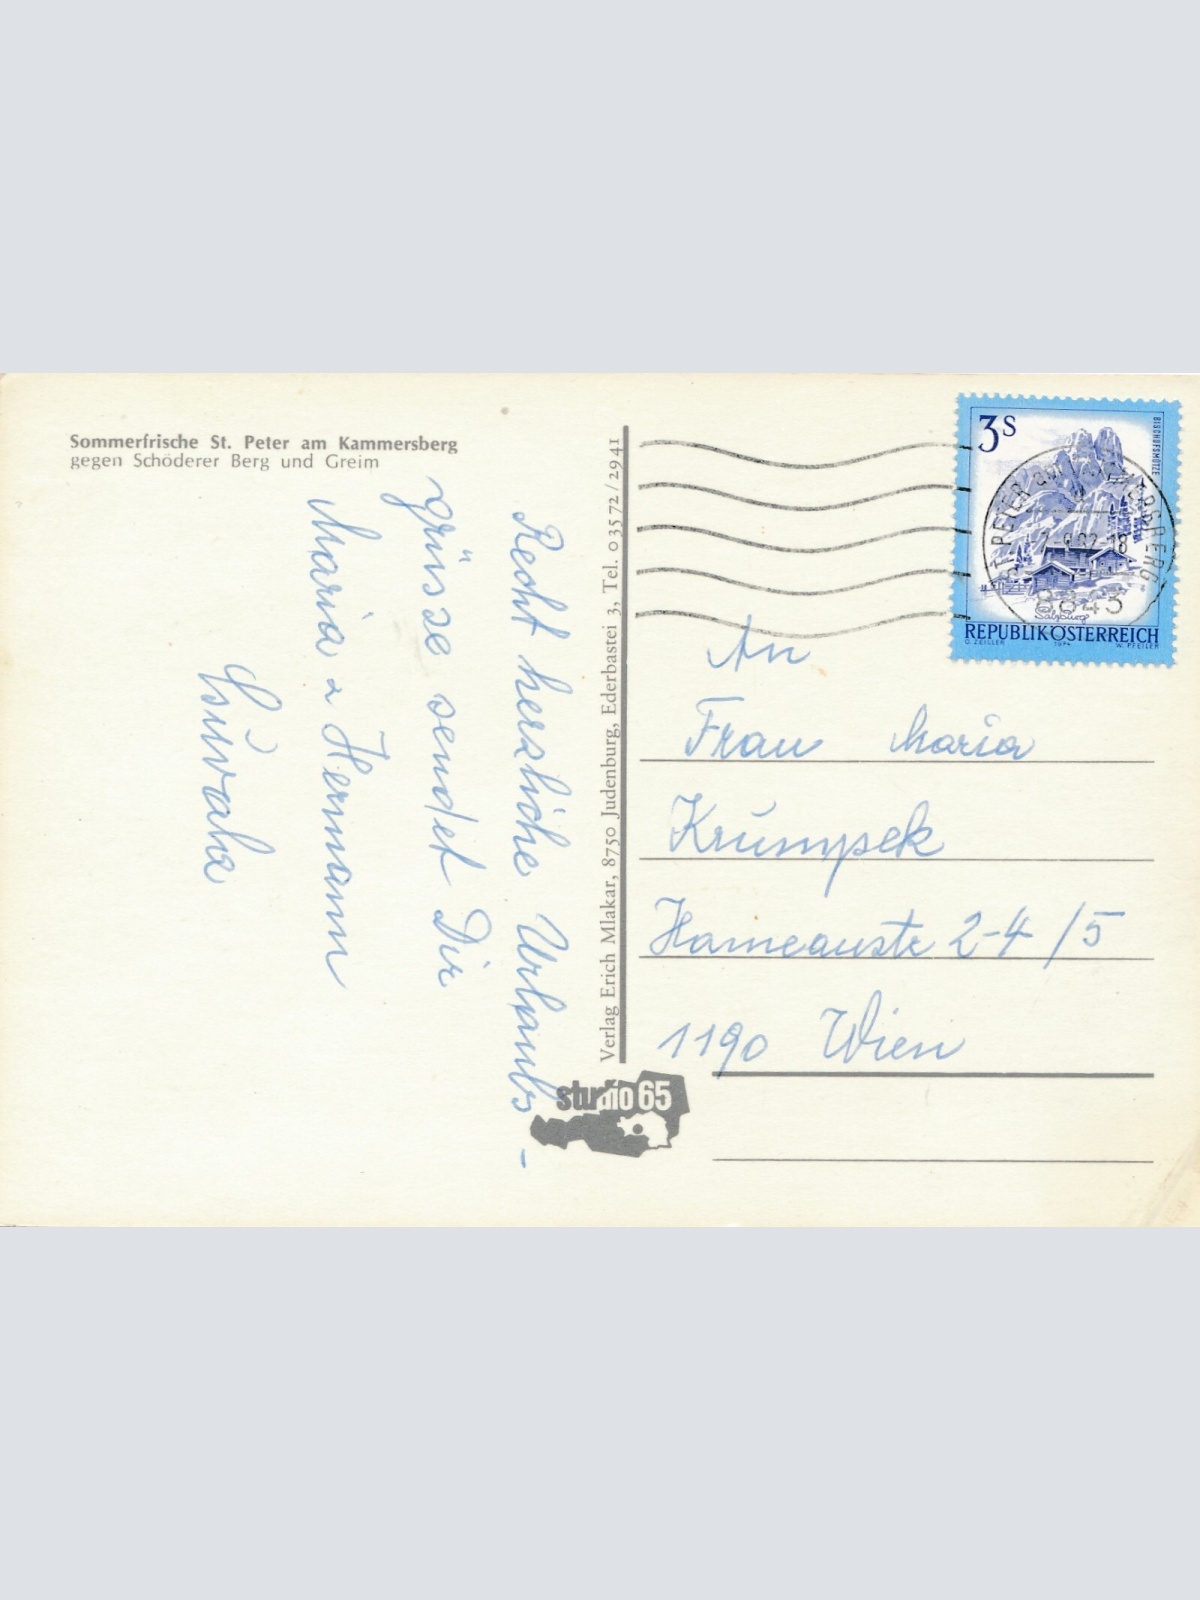 Sommerfrische St. Peter am Kammersberg
gegen Schöderer Berg und Greim
Recht herzliche Urlaubs-
grüsse sendet Dir
Maria u Hermann
Verlag Erich Mlakar, 8750 Judenburg, Ederbastei 3, Tel. 03572/2941
studio 65
3S
BISCHOFSMÜTZE
Salzburg
REPUBLIK ÖSTERREICH
O. ZEILLER 1974 W. PFEILER
ST. PETER am KAMMERSBERG
82-18
8843
An
Frau Maria
Krumpek
Hameaustr 2-4/5
1190 Wien